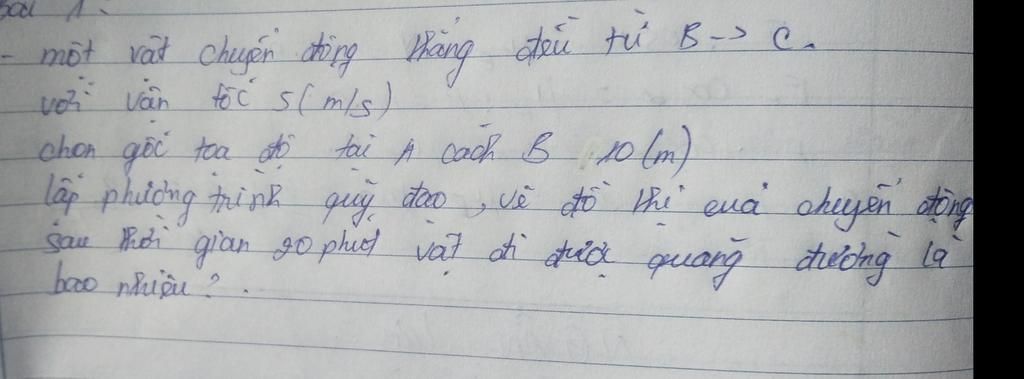 Bài 1:
- một vật chuyển động thẳng đều từ B -> C.
với vận tốc 5 (m/s)
chọn gốc tọa độ tại A cách B 10 (m)
lập phương trình quỹ đạo, vẽ đồ thị của chuyển động
sau thời gian 20 phút vật đi được quãng đường là
bao nhiêu?.